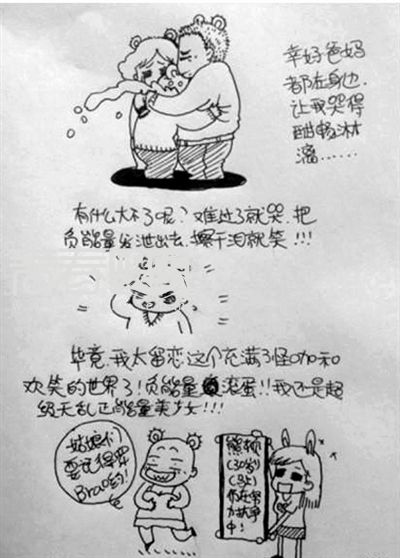 幸好爸妈
都在身边,
让我哭得
酣畅淋
漓……
有什么大不了呢?难过了就哭,把
负能量发泄出去,擦干泪就笑!!!
毕竟,我太留恋这个充满了怪咖和
欢笑的世界了!负能量滚蛋!!我还是超
级无乱正能量美少女!!!
姑娘们
要记得
Bra的!
熊顿
(30岁)
仍在努
力抗争
中!